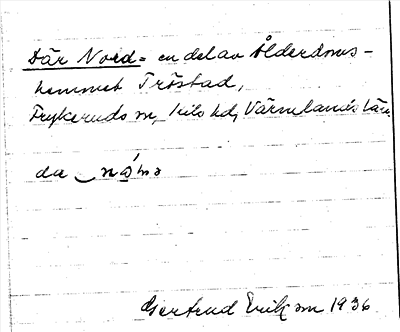 Där Nord = en del av Ålderdoms-
hemmet Tröstad,
Frykeruds sn, Kils hd, Värmlands län
da
Gertrud Erikson 1936